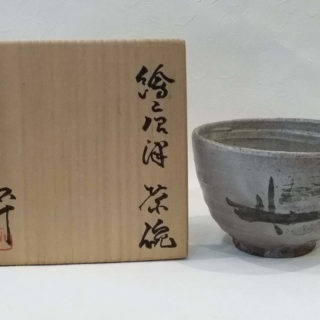 繪唐津 茶碗